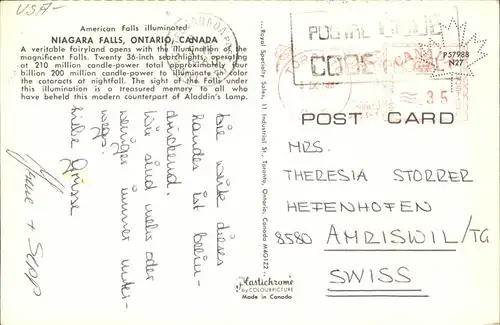 USA-
American Falls illuminated
NIAGARA FALLS, ONTARIO, CANADA
A veritable fairyland opens with the illumination of the
magnificent Falls. Twenty 36-inch searchlights, operating
at 210 million candle-power total approximately four
billion 200 million candle-power to illuminate in color
the cataracts at nightfall. The sight of the Falls under
this illumination is a treasured memory to all who
have beheld this modern counterpart of Aladdin's Lamp.
Die Weite dieses
Landes ist beein-
druckend.
Wir sind mehr oder
weniger immer unter-
wegs.
Liebe Grüsse
+ Sepp
Royal Specialty Sales, 11 Industrial St., Toronto, Ontario, Canada M4G1Z2
Plastichrome
by COLOURPICTURE
Made in Canada
POSTAL CODE
CODE
CANADA
P57988
N27
35
POST CARD
MRS.
THERESIA STORRER
HEFENHOFEN
8580 AMRISWIL/TG
SWISS